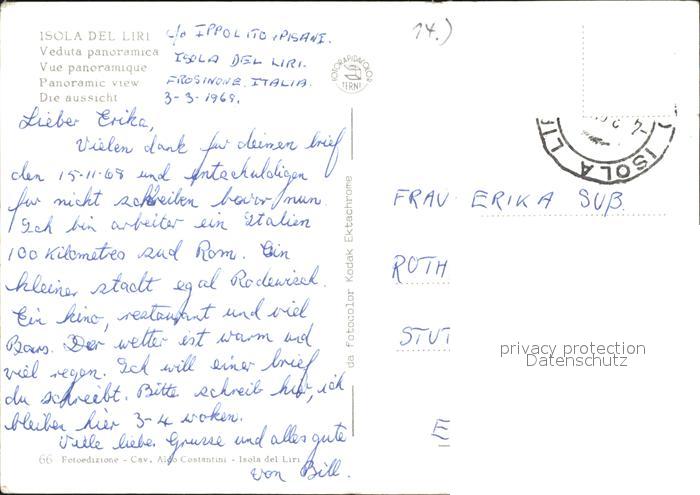 ISOLA DEL LIRI
Veduta panoramica
Vue panoramique
Panoramic view
Die aussicht
c/o IPPOLITO PISANI.
ISOLA DEL LIRI.
FROSINONE. ITALIA.
3-3-1969.
14.)
FOTORAPIDACOLOR
TERNI
Lieber Erika,
Vielen dank fur deinen brief
den 15-11-68 und entschuldigen
fur nicht schreiben bevor nun.
Ich bin arbeiter ein Italien
100 Kilometres sud Rom. Ein
kleiner stadt egal Rodewisch.
Ein kino, restaurant und viel
Bars. Der wetter ist warm und
viel regen. Ich will einer brief
du schreibt. Bitte schreib hier, ich
bleiben hier 3-4 woken.
Viele liebe Grusse und alles gute
von Bill.
66 Fotoedizione - Cav. Aldo Costantini - Isola del Liri
da Fotocolor Kodak Ektachrome
ISOLA LI
FRAU ERIKA SUß.
ROTH
STUT
E
privacy protection
Datenschutz